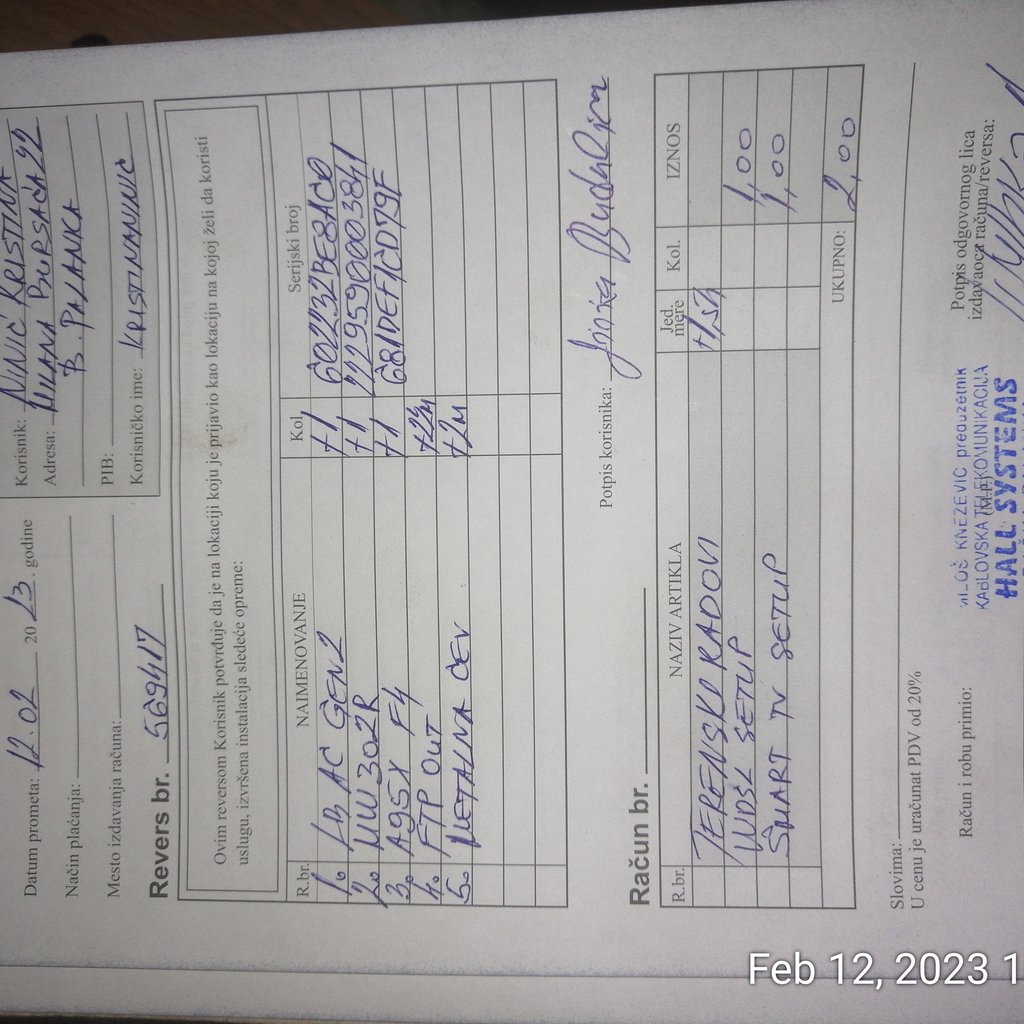 Korisnik: NINIĆ KRISTINA
Adresa: MILANA BURSAĆA 22
B. PALANKA
PIB:
Korisničko ime: KRISTINANINIC
Datum prometa: 12.02 2023. godine
Način plaćanja:
Mesto izdavanja računa:
Revers br. 569417
Ovim reversom Korisnik potvrđuje da je na lokaciji koju je prijavio kao lokaciju na kojoj želi da koristi
uslugu, izvršena instalacija sledeće opreme:
R.br. NAIMENOVANJE Kol. Serijski broj
1. LB AC GEN2 +1 602232BE8ACD
2. MW302R +1 2229590003841
3. A95X F4 +1 681DEF1CD79F
4. FTP OUT +24M
5. METALNA CEV +2M
Potpis korisnika:
Račun br.
R.br. NAZIV ARTIKLA Jed. mere Kol. IZNOS
TERENSKI RADOVI
WDSL SETUP 1,00
SMART TV SETUP 1,00
UKUPNO: 2,00
Slovima:
U cenu je uračunat PDV od 20%
Račun i robu primio:
(M.P.)
Potpis odgovornog lica
izdavaoca računa/reversa:
MILOŠ KNEŽEVIĆ preduzetnik
KABLOVSKA TELEKOMUNIKACIJA
HALL SYSTEMS
Feb 12, 2023 1